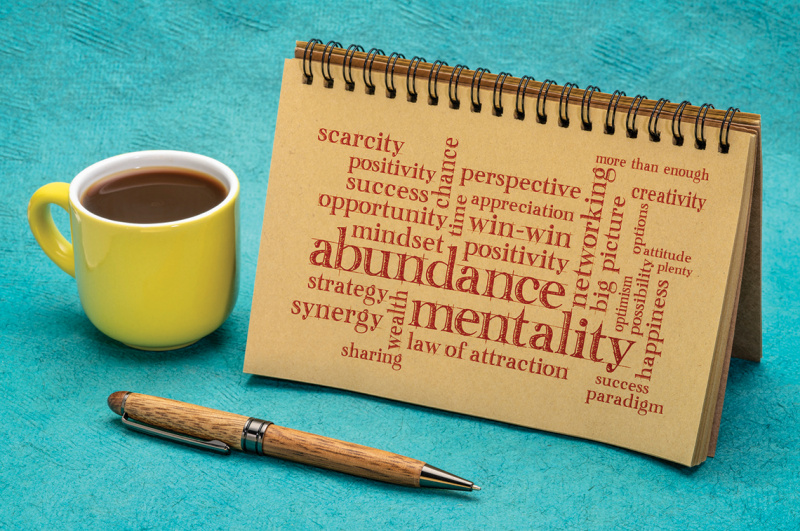 scarcity
positivity
success
opportunity
mindset
chance
time
perspective
appreciation
win-win
positivity
abundance
mentality
strategy
synergy
wealth
sharing
law of attraction
networking
big picture
more than enough
creativity
options
attitude
plenty
optimism
possibility
happiness
success
paradigm